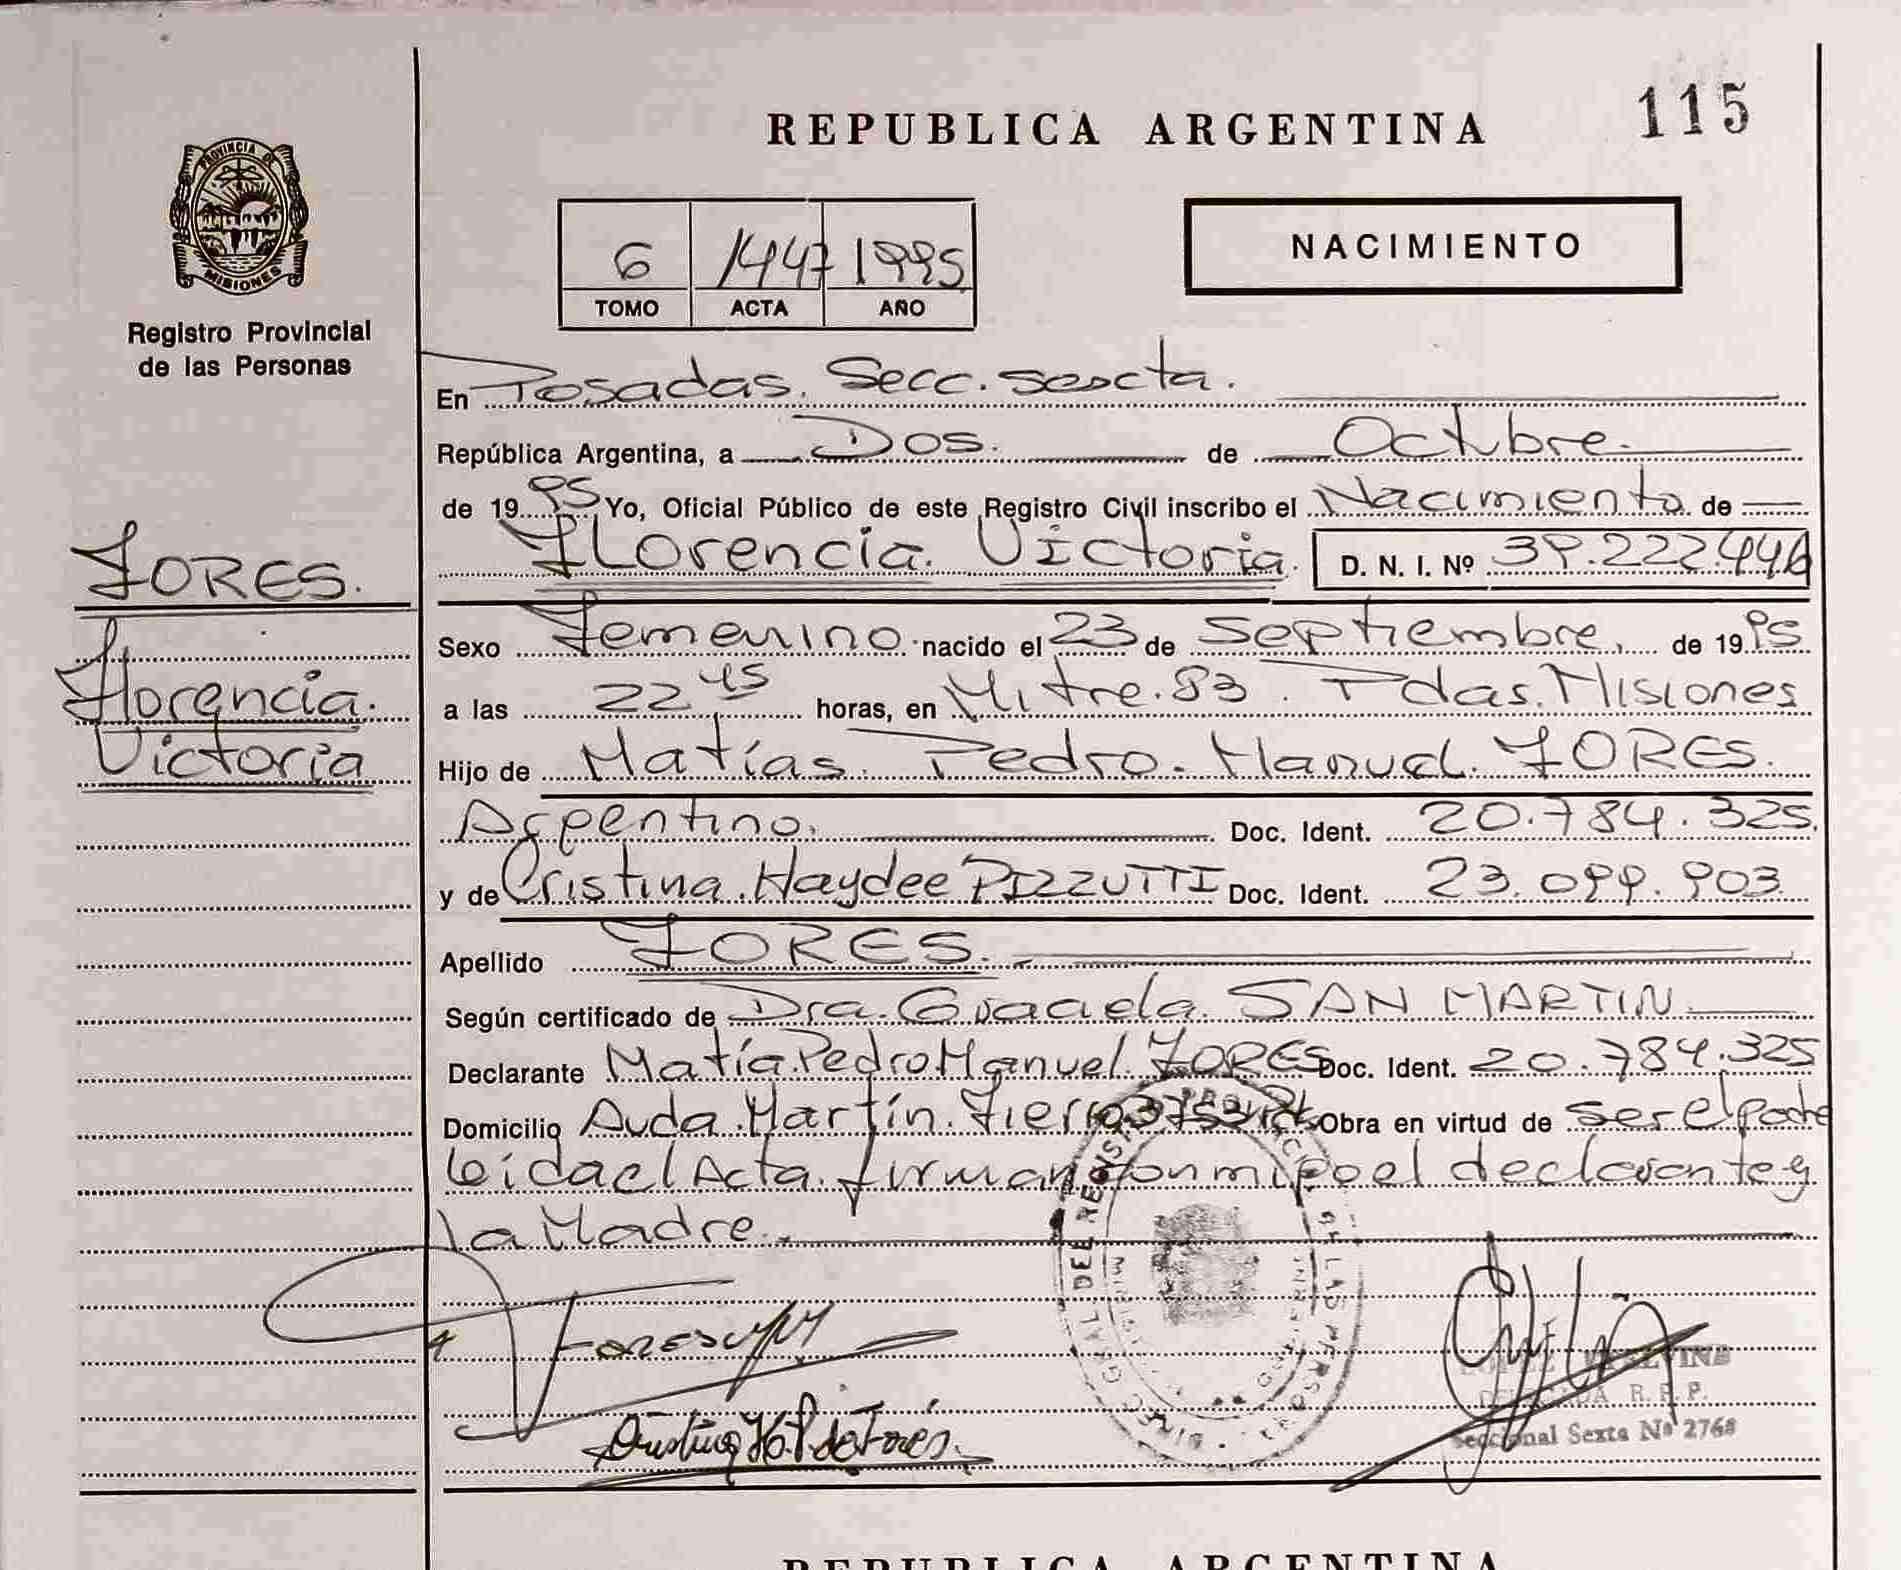 115
REPUBLICA ARGENTINA
PROVINCIA DE
MISIONES
Registro Provincial
de las Personas
6 1447 1995
TOMO ACTA AÑO
NACIMIENTO
FORES.
Florencia.
Victoria
En Posadas. Secc. sexta.
República Argentina, a Dos. de Octubre.
de 1995 Yo, Oficial Público de este Registro Civil inscribo el Nacimiento de
Florencia. Victoria. D. N. I. Nº 39.222.446
Sexo Femenino. nacido el 23 de Septiembre, de 1995
a las 22 45 horas, en Mitre. 83. Pdas. Misiones
Hijo de Matías. Pedro. Manuel. FORES.
Argentino. Doc. Ident. 20.784.325.
y de Cristina. Haydee PIZZUTTI Doc. Ident. 23.099.903
Apellido FORES.
Según certificado de Dra. Graciela. SAN MARTIN
Declarante Matía. Pedro Manuel. FORES Doc. Ident. 20.784.325
Domicilio Avda. Martín. Fierro 3753 Obra en virtud de ser el padre
Leida el Acta. firman con migo el declarante y
la Madre.
FORES
Cristina H. P. de Forés.
R. P. P.
Seccional Sexta Nº 2768
REPUBLICA ARGENTINA